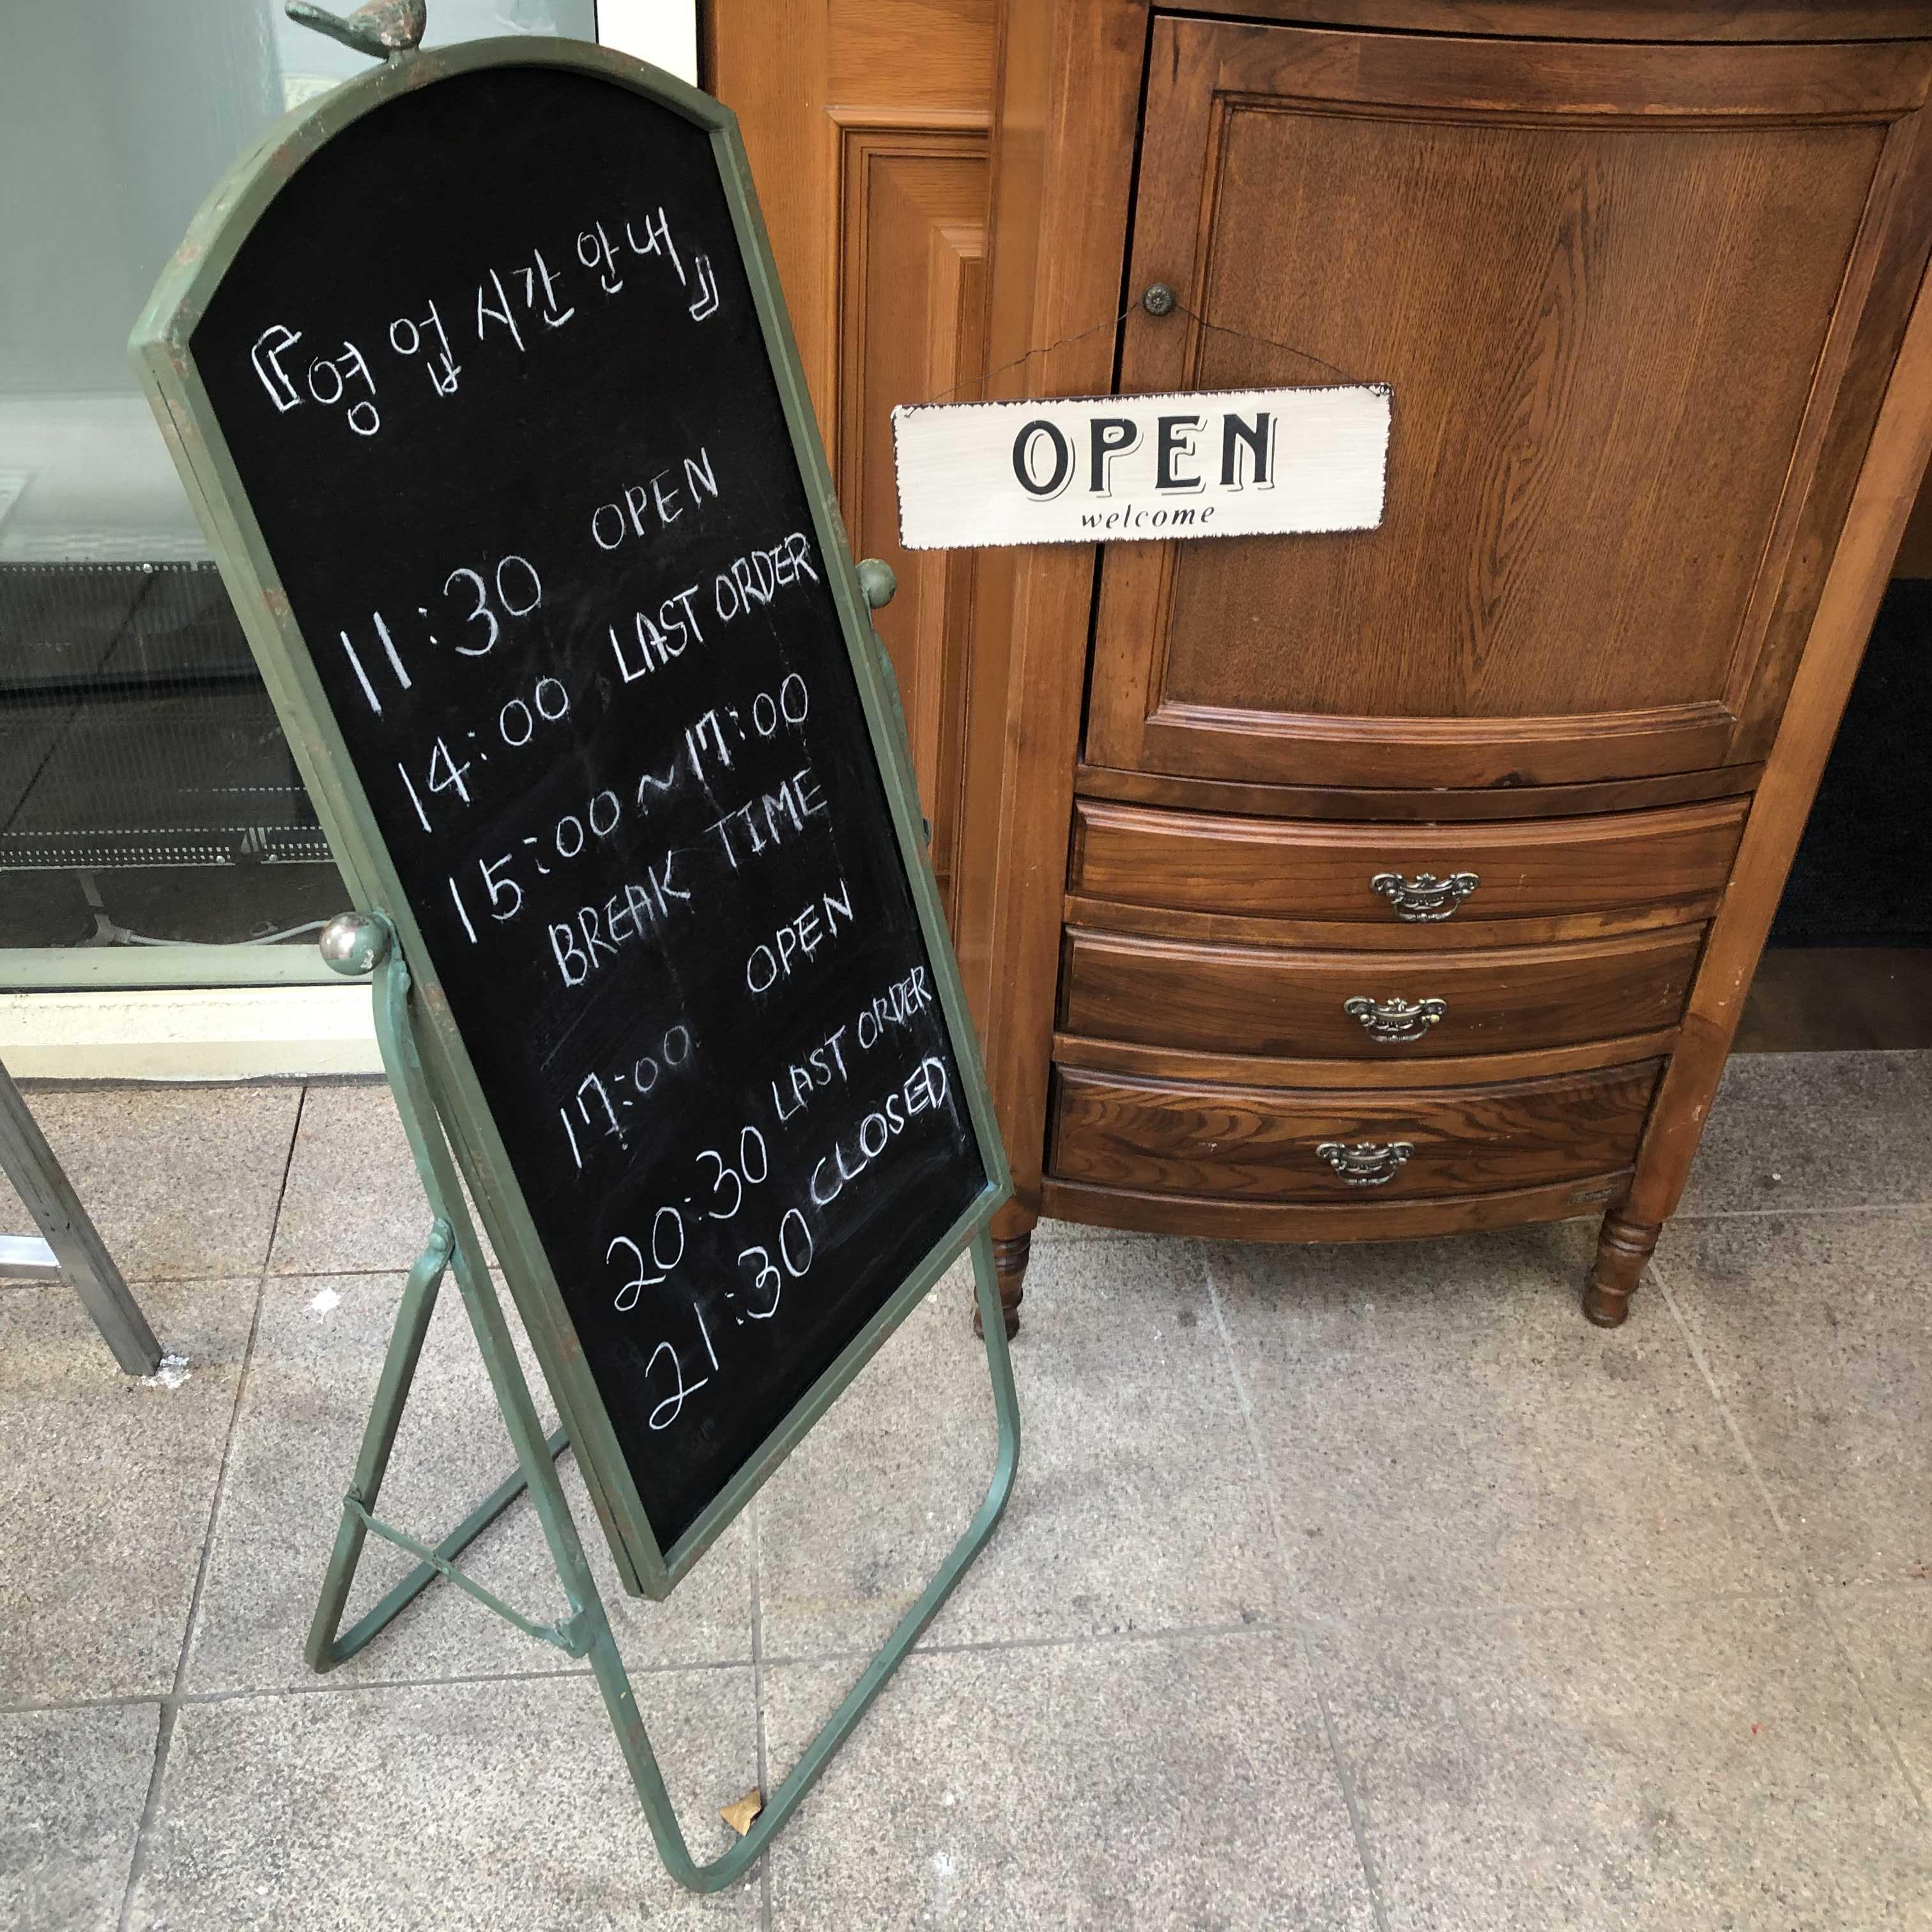 『영업시간 안내』
11:30 OPEN
14:00 LAST ORDER
15:00~17:00
BREAK TIME
17:00 OPEN
20:30 LAST ORDER
21:30 CLOSED
OPEN
welcome